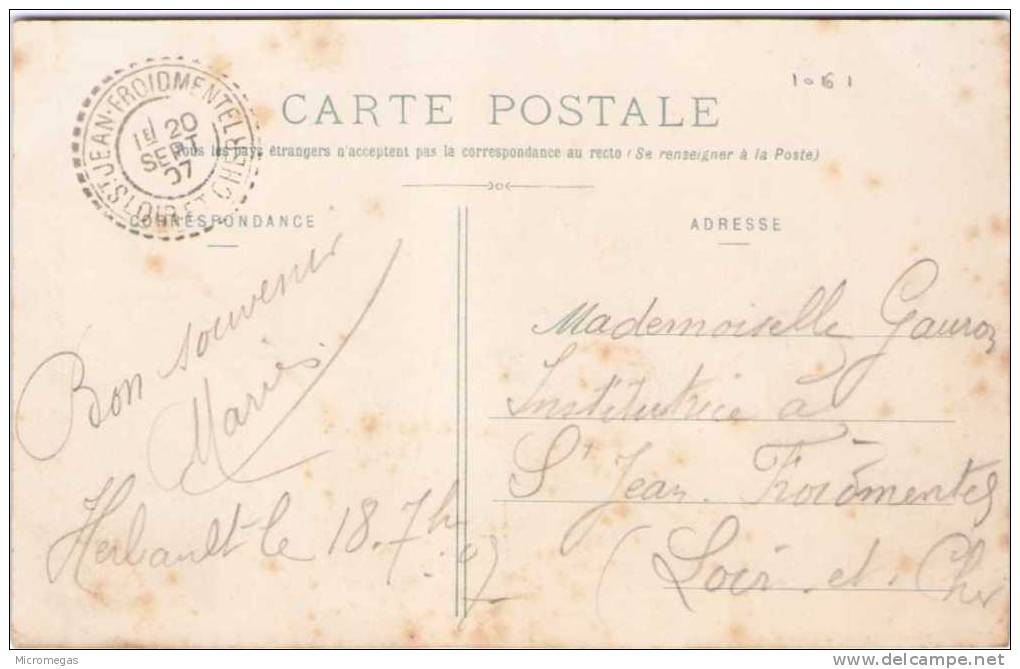 1061
CARTE POSTALE
Tous les pays étrangers n'acceptent pas la correspondance au recto (Se renseigner à la Poste)
ST JEAN-FROIDMENTEL
1E 20
SEPT
07
LOIR ET CHER
CORRESPONDANCE
Bon souvenir
Maries
Herbault le 18. 7h 07
ADRESSE
Mademoiselle Gauron
Institutrice à
St Jean. Froidmentel
(Loir et. Cher
Micromegas
delcampe.net